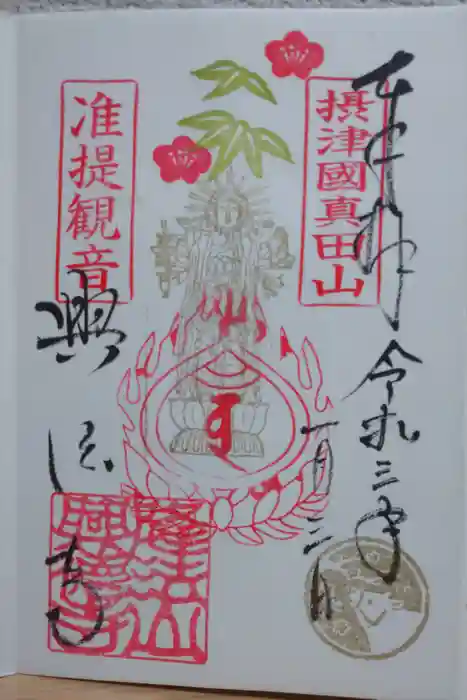 奉拝
摂津國真田山
令和三年
一月三日
准提観音
興徳寺